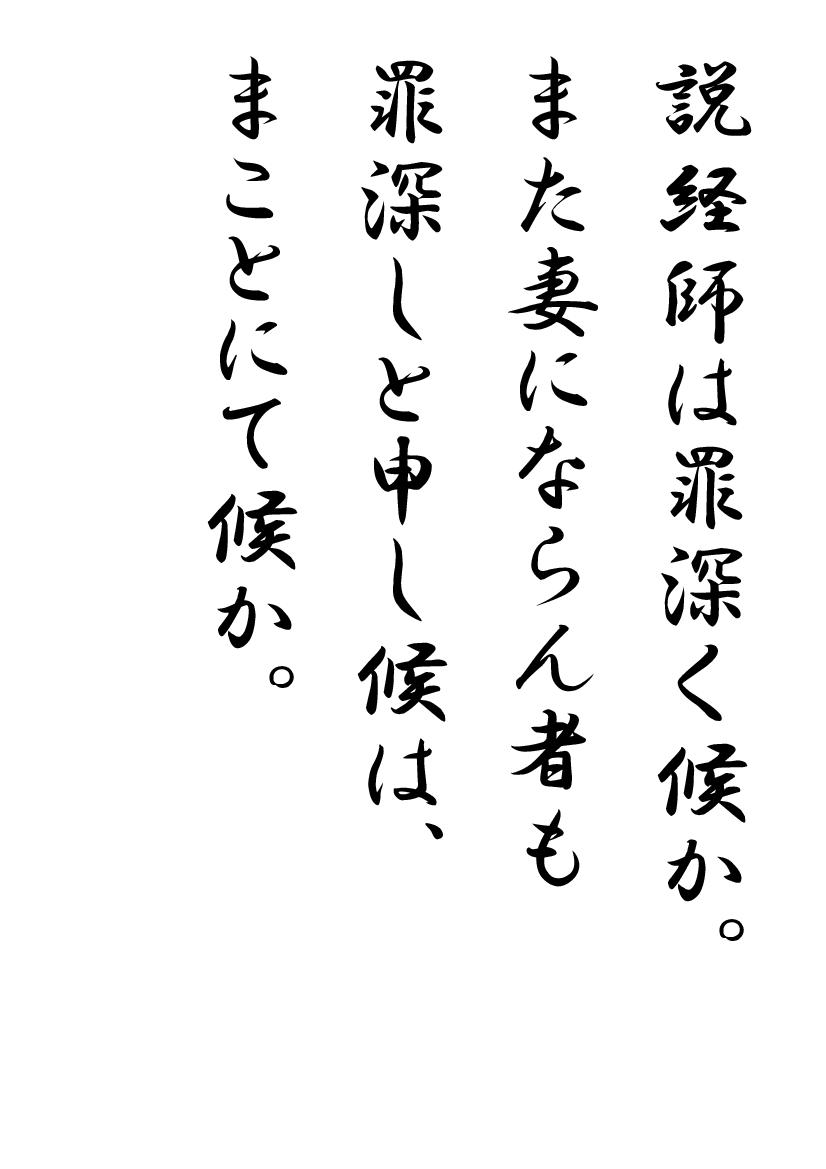 説経師は罪深く候か。
また妻にならん者も
罪深しと申し候は、
まことにて候か。